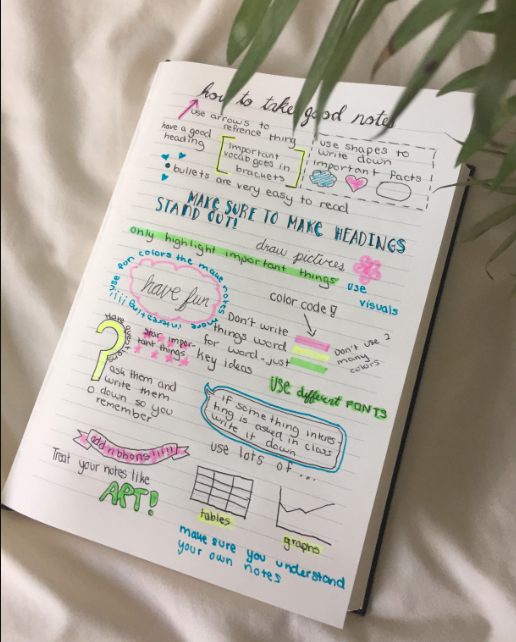 how to take good notes
use arrows to
refrence thing
have a good
heading
important
vocab goes in
brackets
use shapes to
write down
important facts!
• bullets are very easy to read
MAKE SURE TO MAKE HEADINGS
STAND OUT!
only highlight important things
draw pictures
use
visuals
use fun colors the make notes more interesting!!!
have fun
color code!!
Don't write
things word
for word - just
key ideas
Don't use 2
many
colors
Have questions?
star impor-
tant things
ask them and
write them
down so you
remember
USE different FONTS
if something intres-
ting is asked in class
write it down
add ribbons!!!!
use lots of ...
Treat your notes like
ART!
tables
graphs
make sure you understand
your own notes